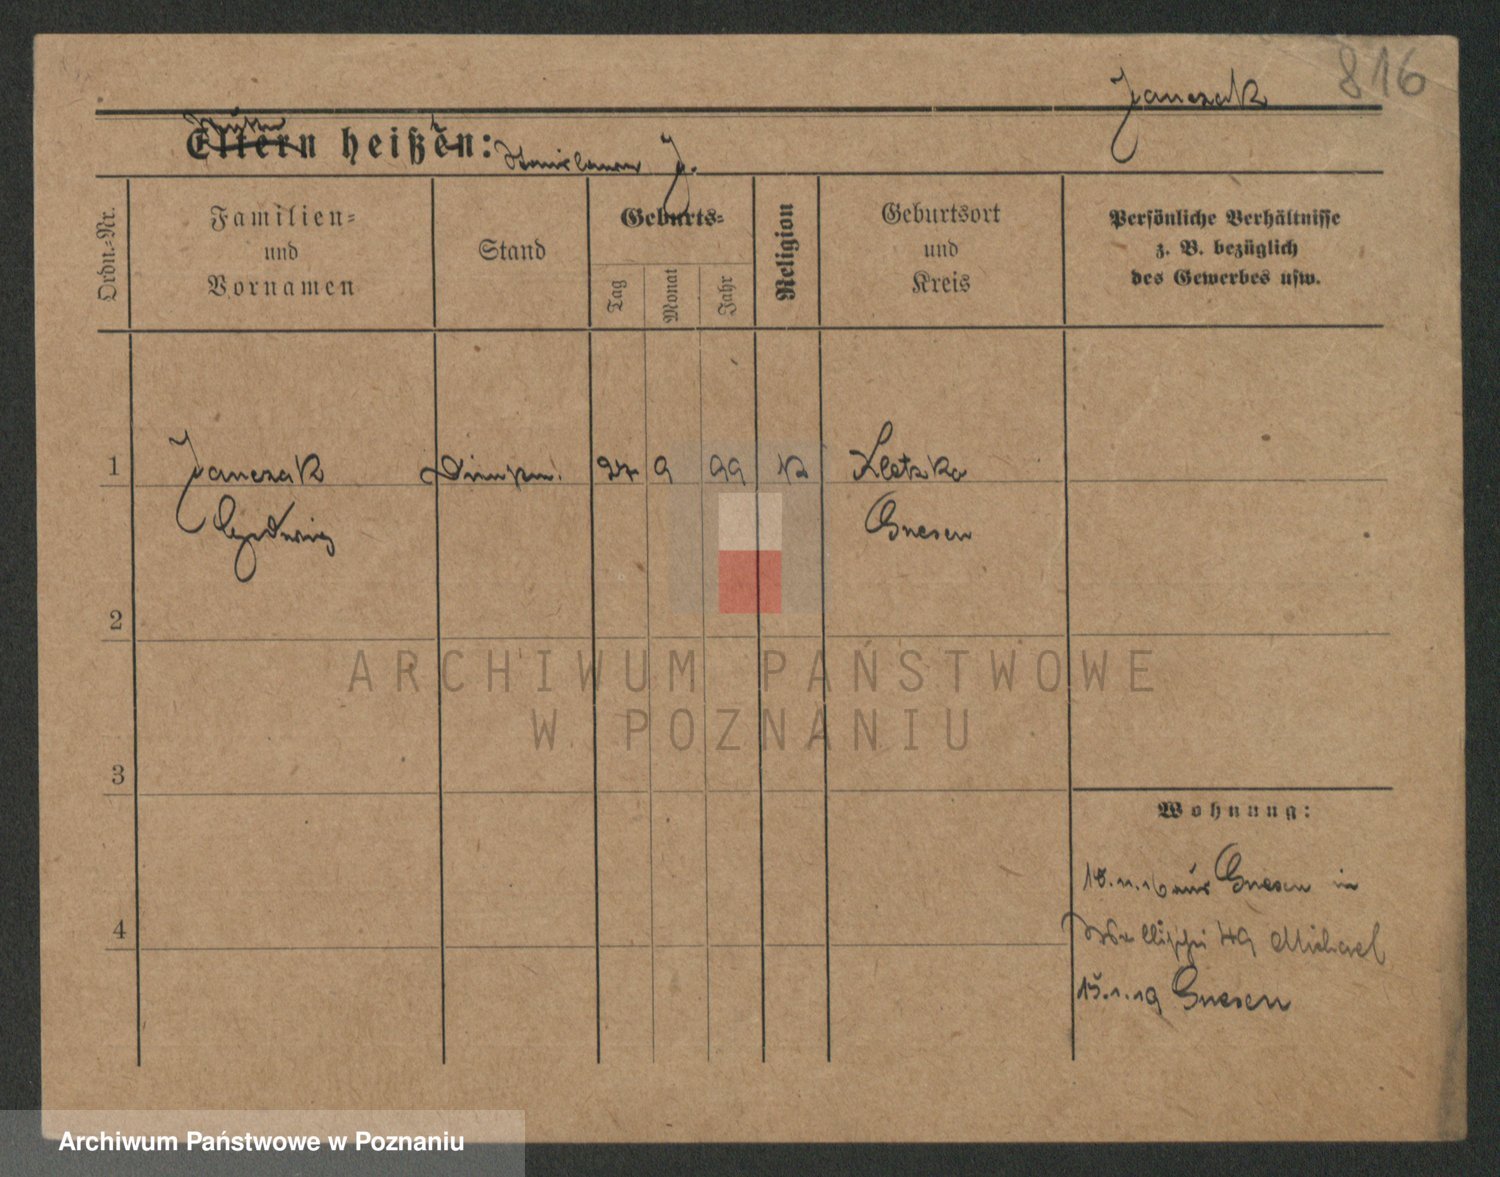 816
Janczak
Eltern heißen: Stanislaus J.
Ordn.-Nr.
Familien-
und
Vornamen
Stand
Geburts-
Tag
Monat
Jahr
Religion
Geburtsort
und
Kreis
Persönliche Verhältnisse
z. B. bezüglich
des Gewerbes usw.
1 Janczak 9 99 K Kletzko
Hedwig Gnesen
2
3
4
Wohnung:
18.11.16 aus Gnesen in
49 Michael
15.1.19 Gnesen
ARCHIWUM PAŃSTWOWE
W POZNANIU
Archiwum Państwowe w Poznaniu